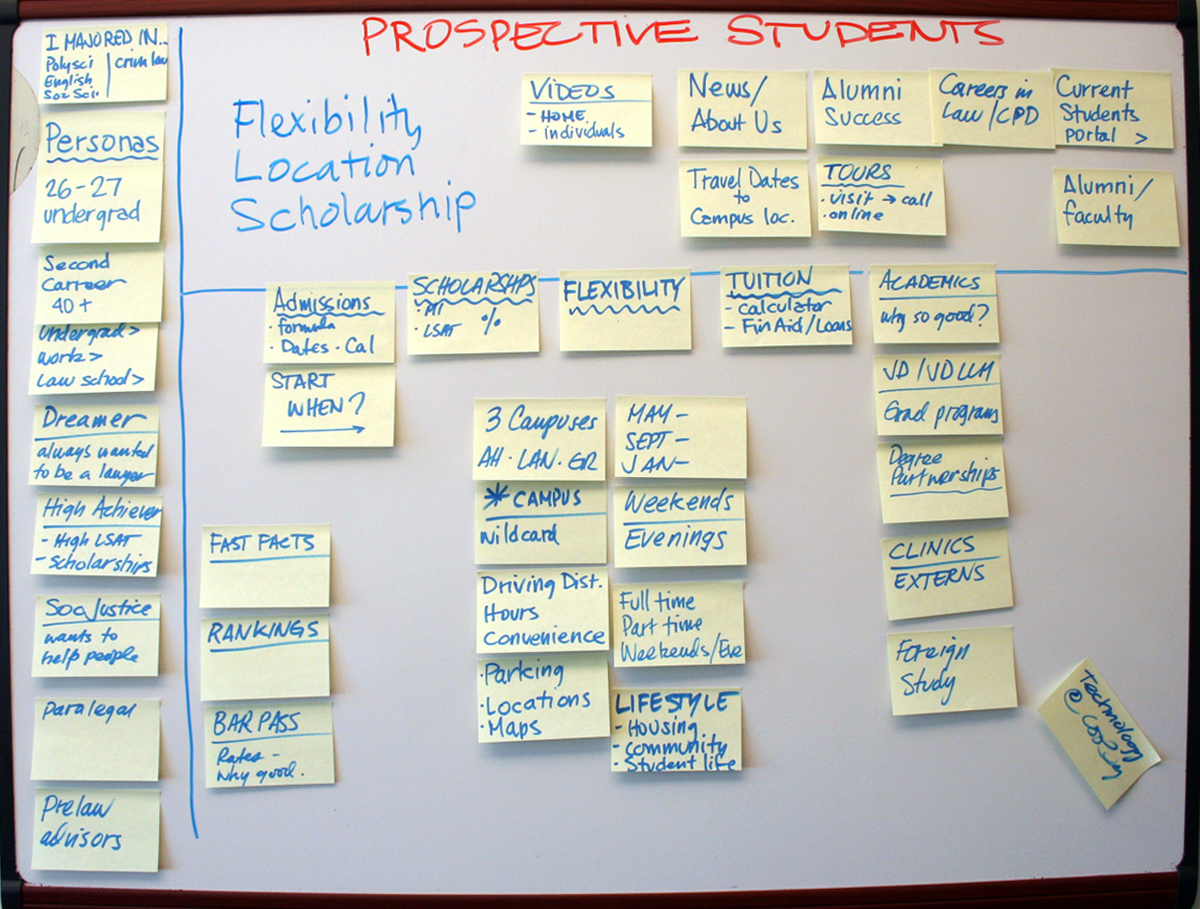 PROSPECTIVE STUDENTS
I MAJORED IN...
Polysci | crim law
English
Soc Sci
Personas
26-27
undergrad
Second
Career
40+
undergrad >
work >
law school >
Dreamer
always wanted
to be a lawyer
High Achiever
- High LSAT
- scholarships
Soc Justice
wants to
help people
paralegal
Prelaw
advisors
Flexibility
Location
Scholarship
VIDEOS
- HOME
- individuals
News/
About Us
Alumni
Success
Careers in
Law/CPD
Current
Students
portal >
Travel Dates
to
Campus loc.
TOURS
· visit → call
· online
Alumni/
faculty
Admissions
· formula
· Dates · Cal
START
WHEN?
SCHOLARSHPS
· LSAT %
FLEXIBILITY
TUITION
- calculator
- Fin Aid/Loans
ACADEMICS
why so good?
JD/JDLLM
Grad programs
Degree
Partnerships
CLINICS
EXTERNS
Foreign
Study
3 Campuses
AH · LAN · GR
* CAMPUS
wildcard
Driving Dist.
Hours
Convenience
· Parking
· Locations
· Maps
MAY -
SEPT -
JAN -
Weekends
Evenings
Full time
Part time
Weekends/Eve
LIFESTYLE
- Housing
- community
- Student life
FAST FACTS
RANKINGS
BAR PASS
Rates -
why good.
Technology
@